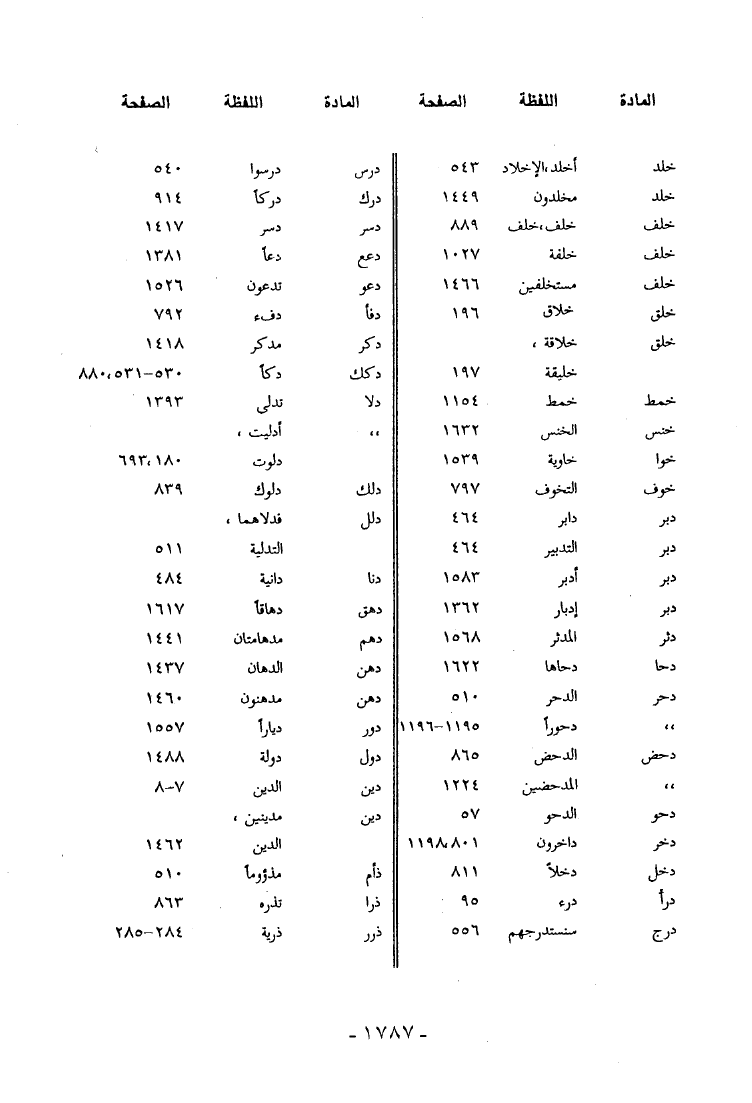 المادة اللفظة الصفحة المادة اللفظة الصفحة
خلد أخلد،الإخلاد ٥٤٣
خلد مخلدون ١٤٤٩
خلف خلف،خلف ٨٨٩
خلف خلفة ١٠٢٧
خلف مستخلفين ١٤٦٦
خلق خلاق ١٩٦
خلق خلاقة ،
خليقة ١٩٧
خمط خمط ١١٥٤
خنس الخنس ١٦٣٢
خوا خاوية ١٥٣٩
خوف التخوف ٧٩٧
دبر دابر ٤٦٤
دبر التدبير ٤٦٤
دبر أدبر ١٥٨٣
دبر إدبار ١٣٦٢
دثر المدثر ١٥٦٨
دحا دحاها ١٦٢٢
دحر الدحر ٥١٠
،، دحوراً ١١٩٥–١١٩٦
دحض الدحض ٨٦٥
،، المدحضين ١٢٢٤
دحو الدحو ٥٧
دخر داخرون ٨٠١،١١٩٨
دخل دخلاً ٨١١
درأ درء ٩٥
درج سنستدرجهم ٥٥٦
درس درسوا ٥٤٠
درك دركاً ٩١٤
دسر دسر ١٤١٧
دعع دعاً ١٣٨١
دعو تدعون ١٥٢٦
دفأ دفء ٧٩٢
دكر مدكر ١٤١٨
دكك دكاً ٥٣٠–٥٣١،٨٨٠
دلا تدلى ١٣٩٣
،، أدليت ،
دلوت ١٨٠،٦٩٣
دلك دلوك ٨٣٩
دلل فدلاهما ،
التدلية ٥١١
دنا دانية ٤٨٤
دهق دهاقاً ١٦١٧
دهم مدهامتان ١٤٤١
دهن الدهان ١٤٣٧
دهن مدهنون ١٤٦٠
دور دياراً ١٥٥٧
دول دولة ١٤٨٨
دين الدين ٧–٨
دين مدينين ،
الدين ١٤٦٢
ذأم مذؤوماً ٥١٠
ذرا تذره ٨٦٣
ذرر ذرية ٢٨٤–٢٨٥
- ١٧٨٧ -